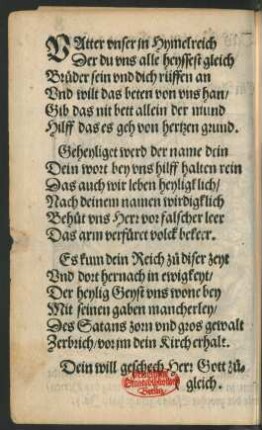 VAtter vnser in Hymelreich
Der du vns alle heyssest gleich
Brüder sein vnd dich rüffen an
Vnd wilt das beten von vns han/
Gib das nit bett allein der mund
Hilff das es geh von hertzen grund.
Geheyliget werd der name dein
Dein wort bey vns hilff halten rein
Das auch wir leben heyligklich/
Nach deinem namen wirdigklich
Behüt vns Herr vor falscher leer
Das arm verfüret volck bekeer.
Es kum dein Reich zů diser zeyt
Vnd dort hernach in ewigkeyt/
Der heylig Geyst vns wone bey
Mit seinen gaben mancherley/
Des Satans zorn vnd gros gewalt
Zerbrich/vor jm dein Kirch erhalt.
Dein will geschech Herr Gott zů-
gleich.